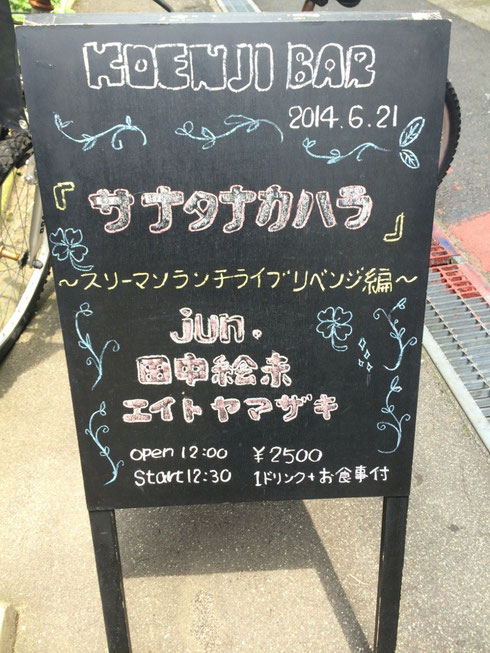 KOENJI BAR
2014.6.21
『サナタナカハラ』
～スリーマンランチライブリベンジ編～
jun.
田中絵未
エイトヤマザキ
open 12:00 ¥2500
Start 12:30 1ドリンク+お食事付